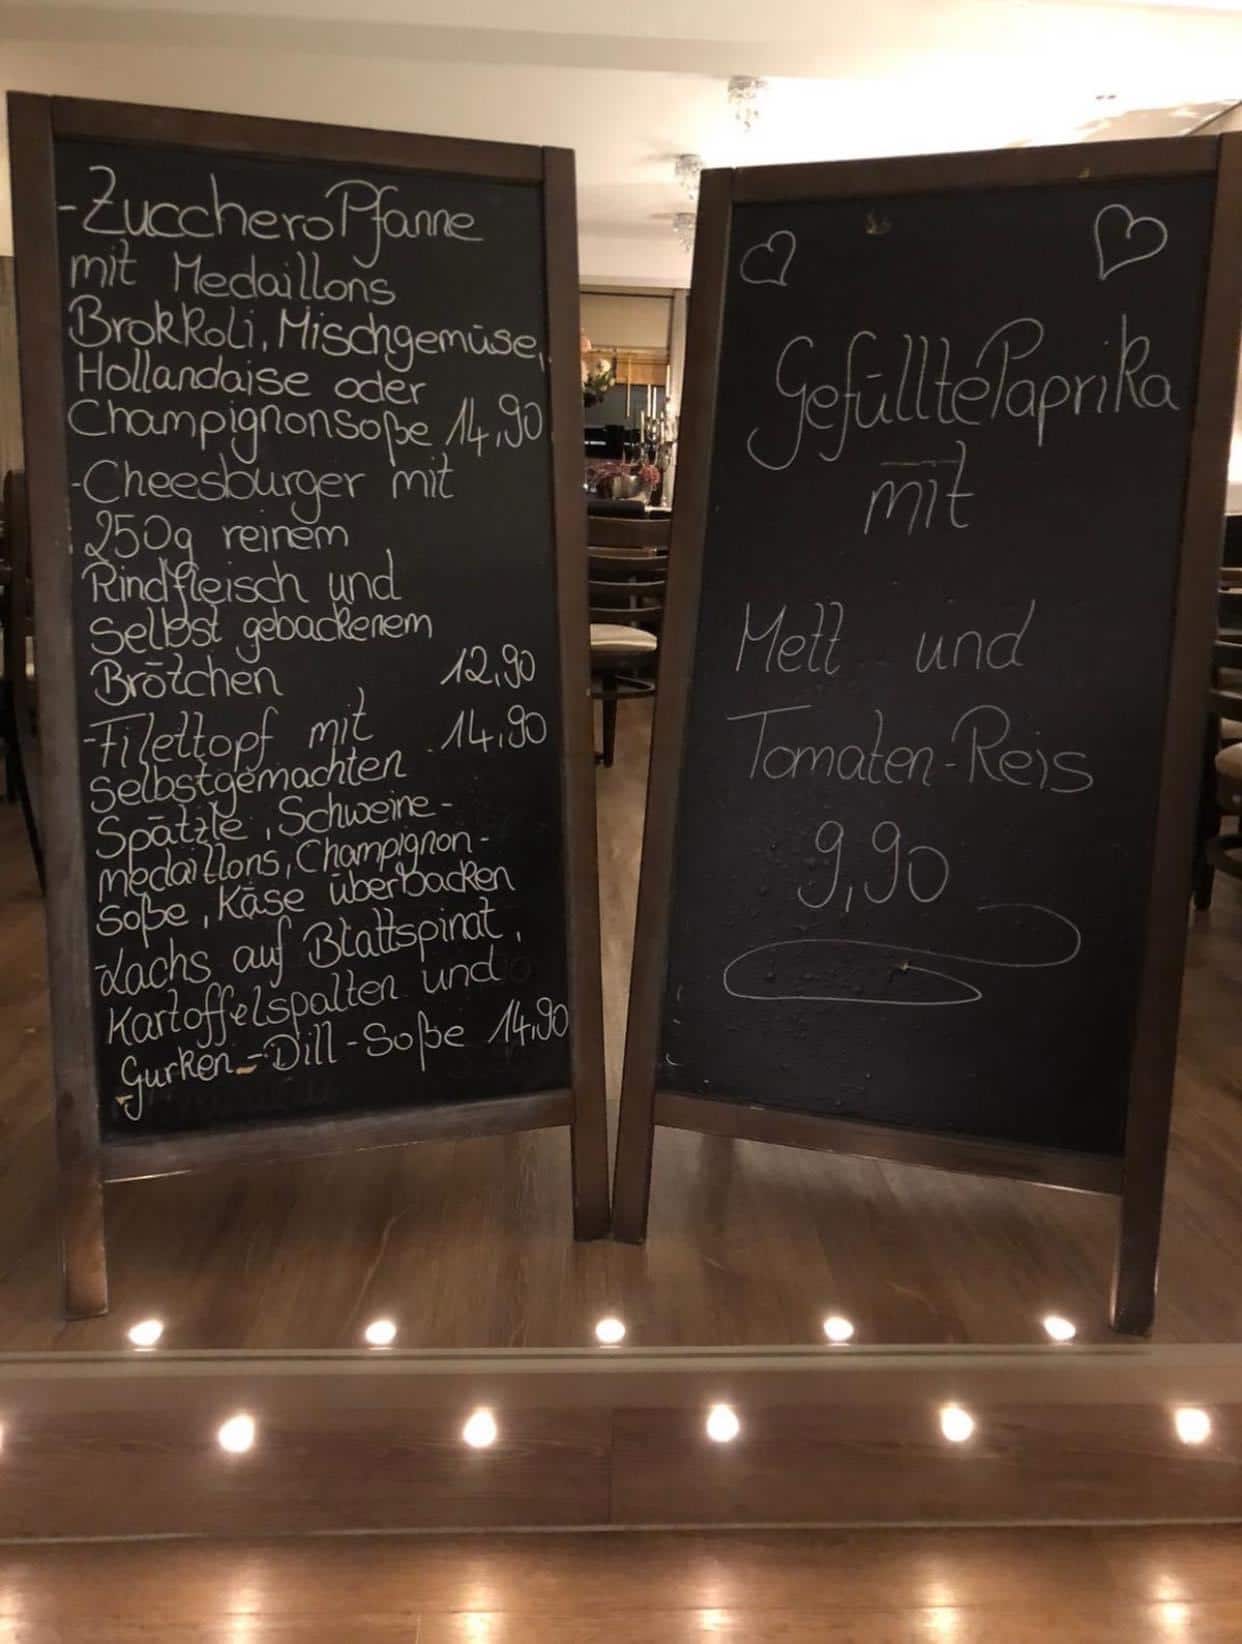 -Zucchero Pfanne
mit Medaillons
Brokkoli, Mischgemüse,
Hollandaise oder
Champignonsoße 14,90
-Cheesburger mit
250g reinem
Rindfleisch und
Selbst gebackenem
Brötchen 12,90
-Filettopf mit 14,90
Selbstgemachten
Spätzle, Schweine-
medaillons, Champignon-
Soße, Käse überbacken
-Lachs auf Blattspinat,
Kartoffelspalten und
Gurken-Dill-Soße 14,90
Gefüllte Paprika
mit
Mett und
Tomaten-Reis
9,90